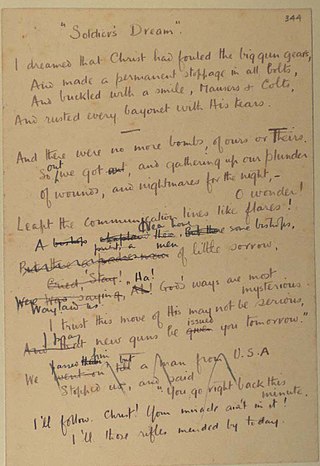 344
"Soldier's Dream".
I dreamed that Christ had fouled the big gun gears,
And made a permanent stoppage in all bolts,
And buckled with a smile, Mausers & Colts,
And rusted every bayonet with His tears.
And there were no more bombs, of ours or Theirs.
So we got out, and gathering up our plunder
of wounds, and nightmares for the night, —
O wonder!
Leapt the communication lines like flares!
A bishops
some bishops,
men of little sorrow,
Cried, 'Stay!' Ha!
Waylaid us! saying, Ah! God's ways are most
mysterious
I trust this move of His may not be serious,
And that new guns be issued given you tomorrow."
We went on till a man from U.S.A
Stopped us, and said
"You go right back this
minute.
I'll follow. Christ! Your miracle ain't in it!
I'll those rifles mended by today.